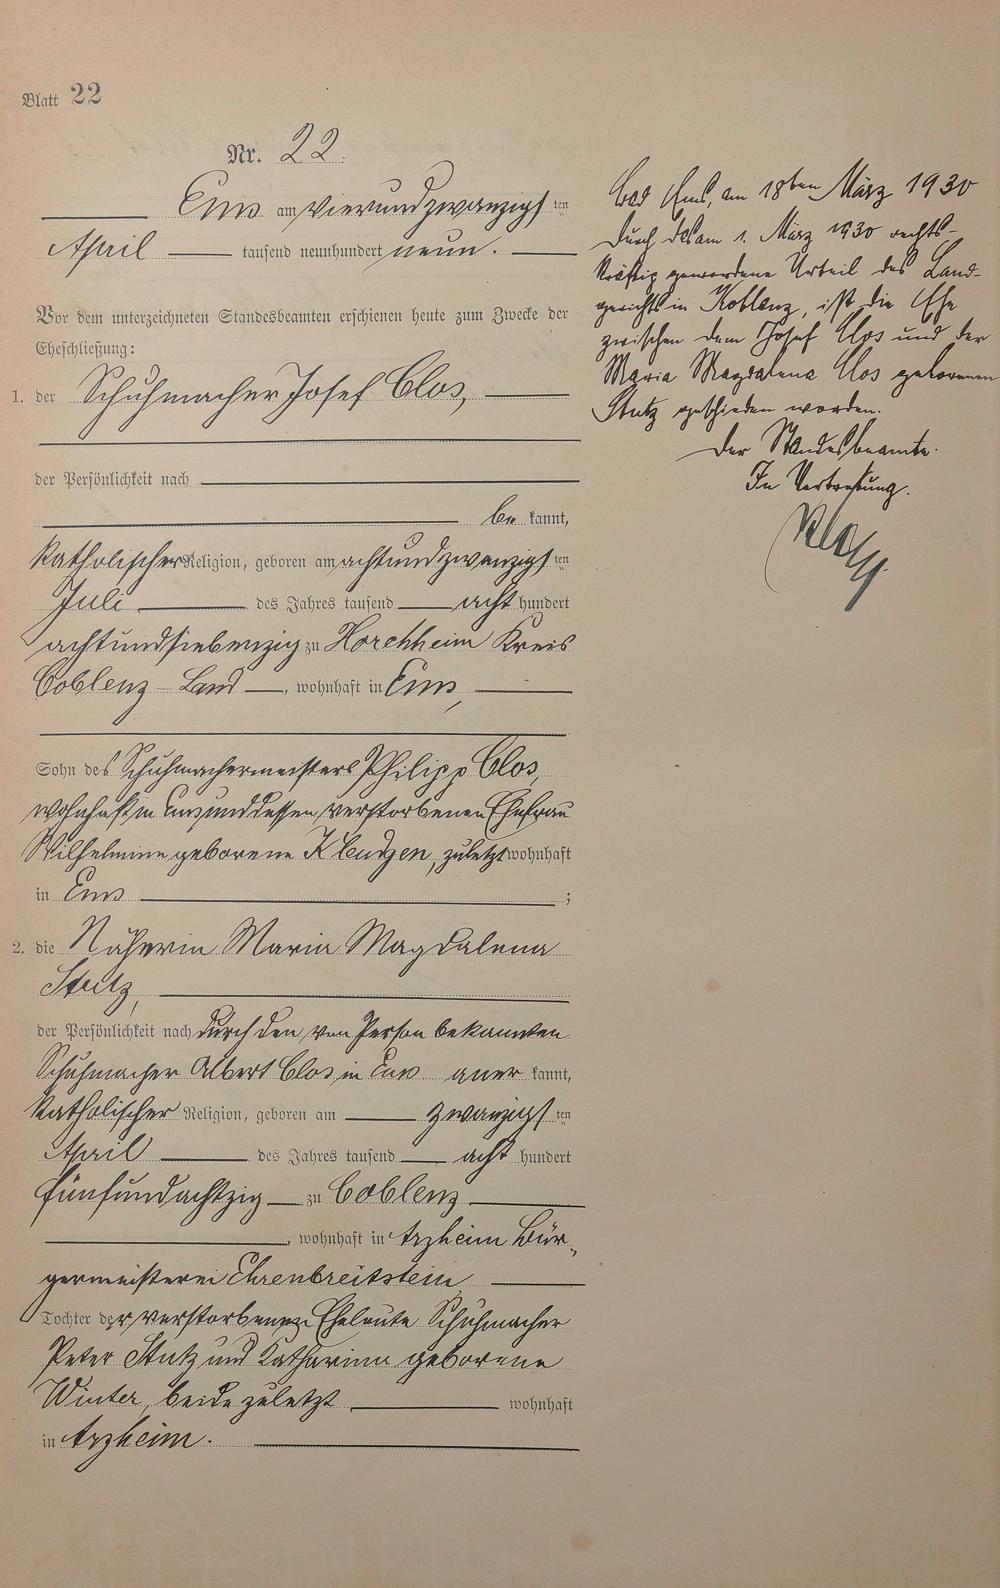 Blatt 22
Nr. 22.
Ems am vierundzwanzigsten
April tausend neunhundert neun.
Vor dem unterzeichneten Standesbeamten erschienen heute zum Zwecke der
Eheschließung:
1. der Schuhmacher Josef Clos,
der Persönlichkeit nach
be kannt,
katholischer Religion, geboren am achtundzwanzigsten
Juli des Jahres tausend acht hundert
achtundsiebenzig zu Horchheim Kreis
Coblenz-Land, wohnhaft in Ems,
Sohn des Schuhmachermeisters Philipp Clos,
wohnhaft in Ems und dessen verstorbenen Ehefrau
Wilhelmine geborene, zuletzt wohnhaft
in Ems;
2. die Näherin Maria Magdalena
Stutz,
der Persönlichkeit nach durch den von Person bekannten
Schuhmacher Albert Clos in Ems aner kannt,
katholischer Religion, geboren am zwanzigsten
April des Jahres tausend acht hundert
fünfundachtzig zu Coblenz
, wohnhaft in Arzheim Bür-
germeisterei Ehrenbreitstein
Tochter der verstorbenen Eheleute Schuhmacher
Peter Stutz und Katharina geborene
Winter, beide zuletzt wohnhaft
in Arzheim.
Bad Ems, am 18ten März 1930
Durch das am 1. März 1930 rechts-
kräftig gewordene Urteil des Land-
gerichts in Koblenz, ist die Ehe
zwischen dem Josef Clos und der
Maria Magdalena Clos geborenen
Stutz geschieden worden.
Der Standesbeamte.
In Vertretung.